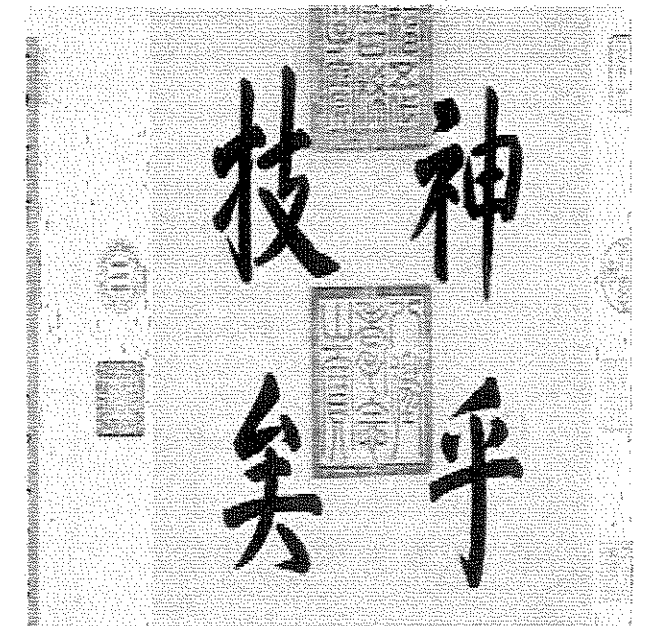 神乎
技矣